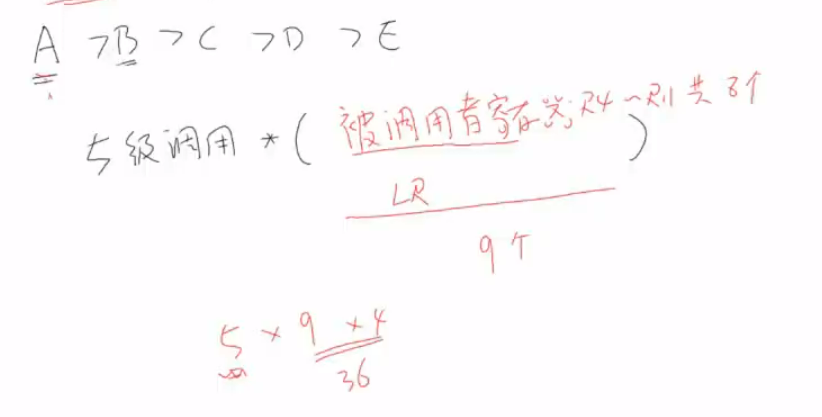 A >B > C > D > E
5级调用 * ( 被调用者寄存器R4~R11共8个 )
LR
9个
5 × 9 × 4
36